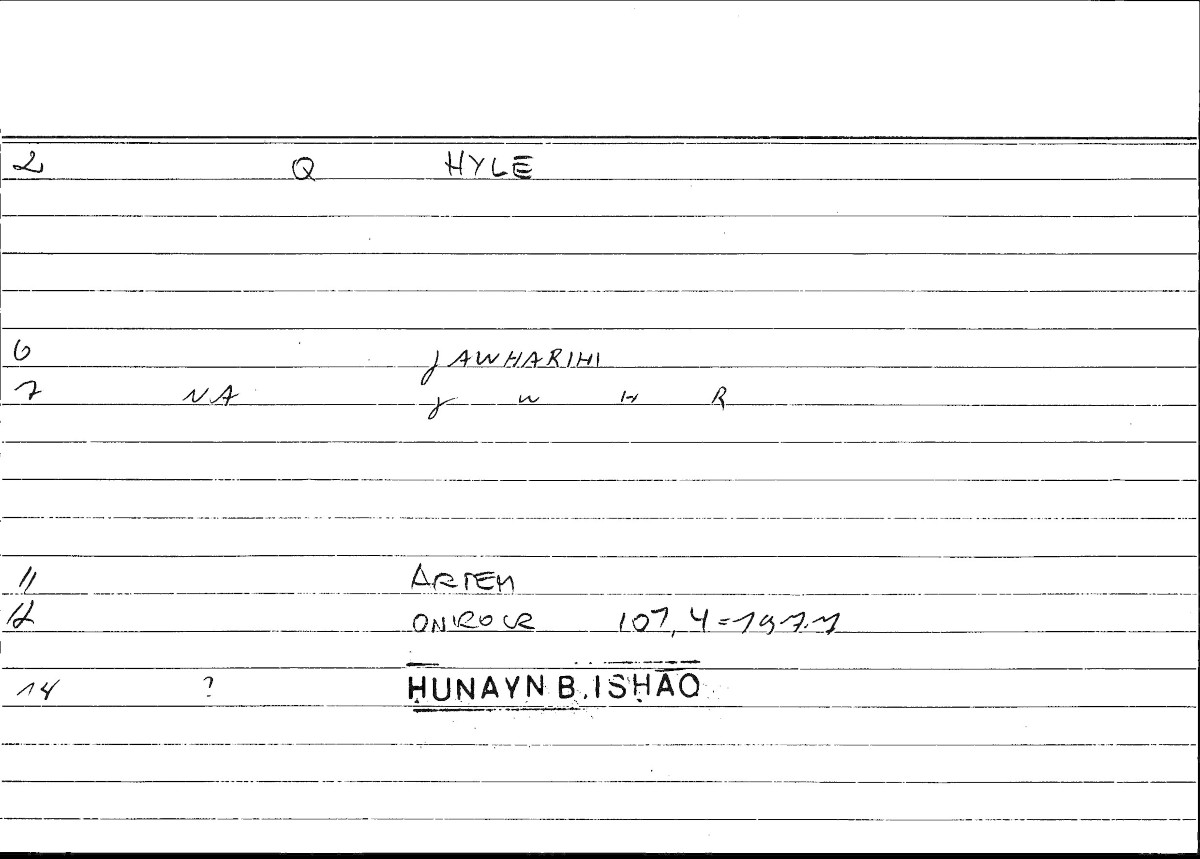 2 Q HYLE
6 JAWHARIHI
7 NA J W H R
11 ARTEM
12 ONIROCR 107, 4 = 197.7
14 ? ḤUNAYN B. ISḤĀQ